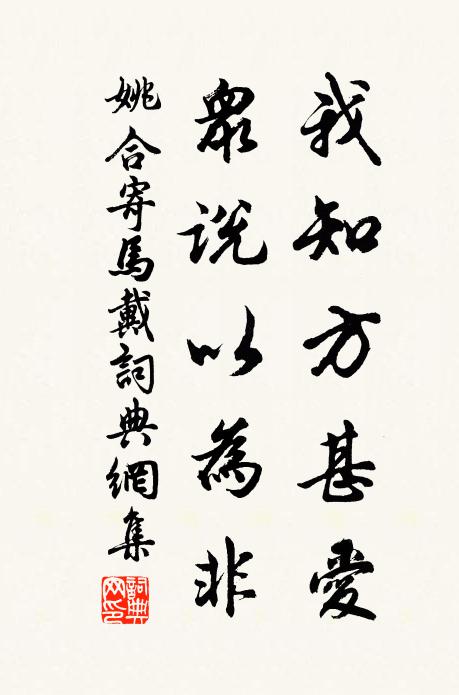 我知方甚愛
眾說以為非
姚合寄馬戴詞典網集
詞典網印